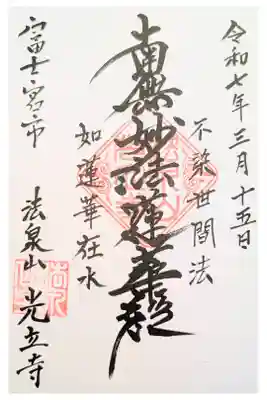 令和七年三月十五日
不染世間法
南無妙法蓮華経
如蓮華在水
富士宮市
法泉山 光立寺